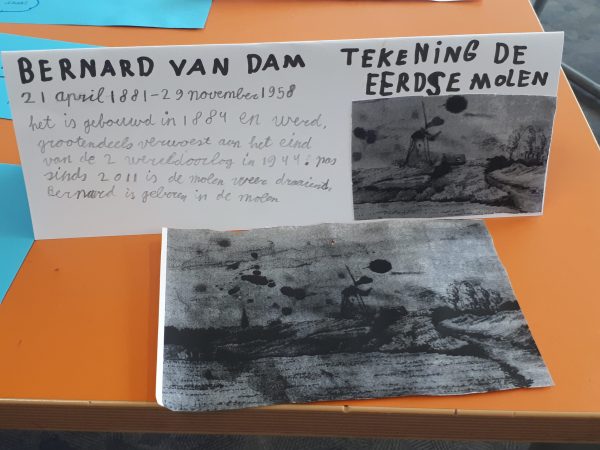 BERNARD VAN DAM
21 april 1881-29 november 1958
het is gebouwd in 1884 en werd,
grootendeels verwoest aan het eind
van de 2 wereldoorlog in 1944. pas
sinds 2011 is de molen weer draaiend,
Bernard is geboren in de molen
TEKENING DE
EERDSE MOLEN